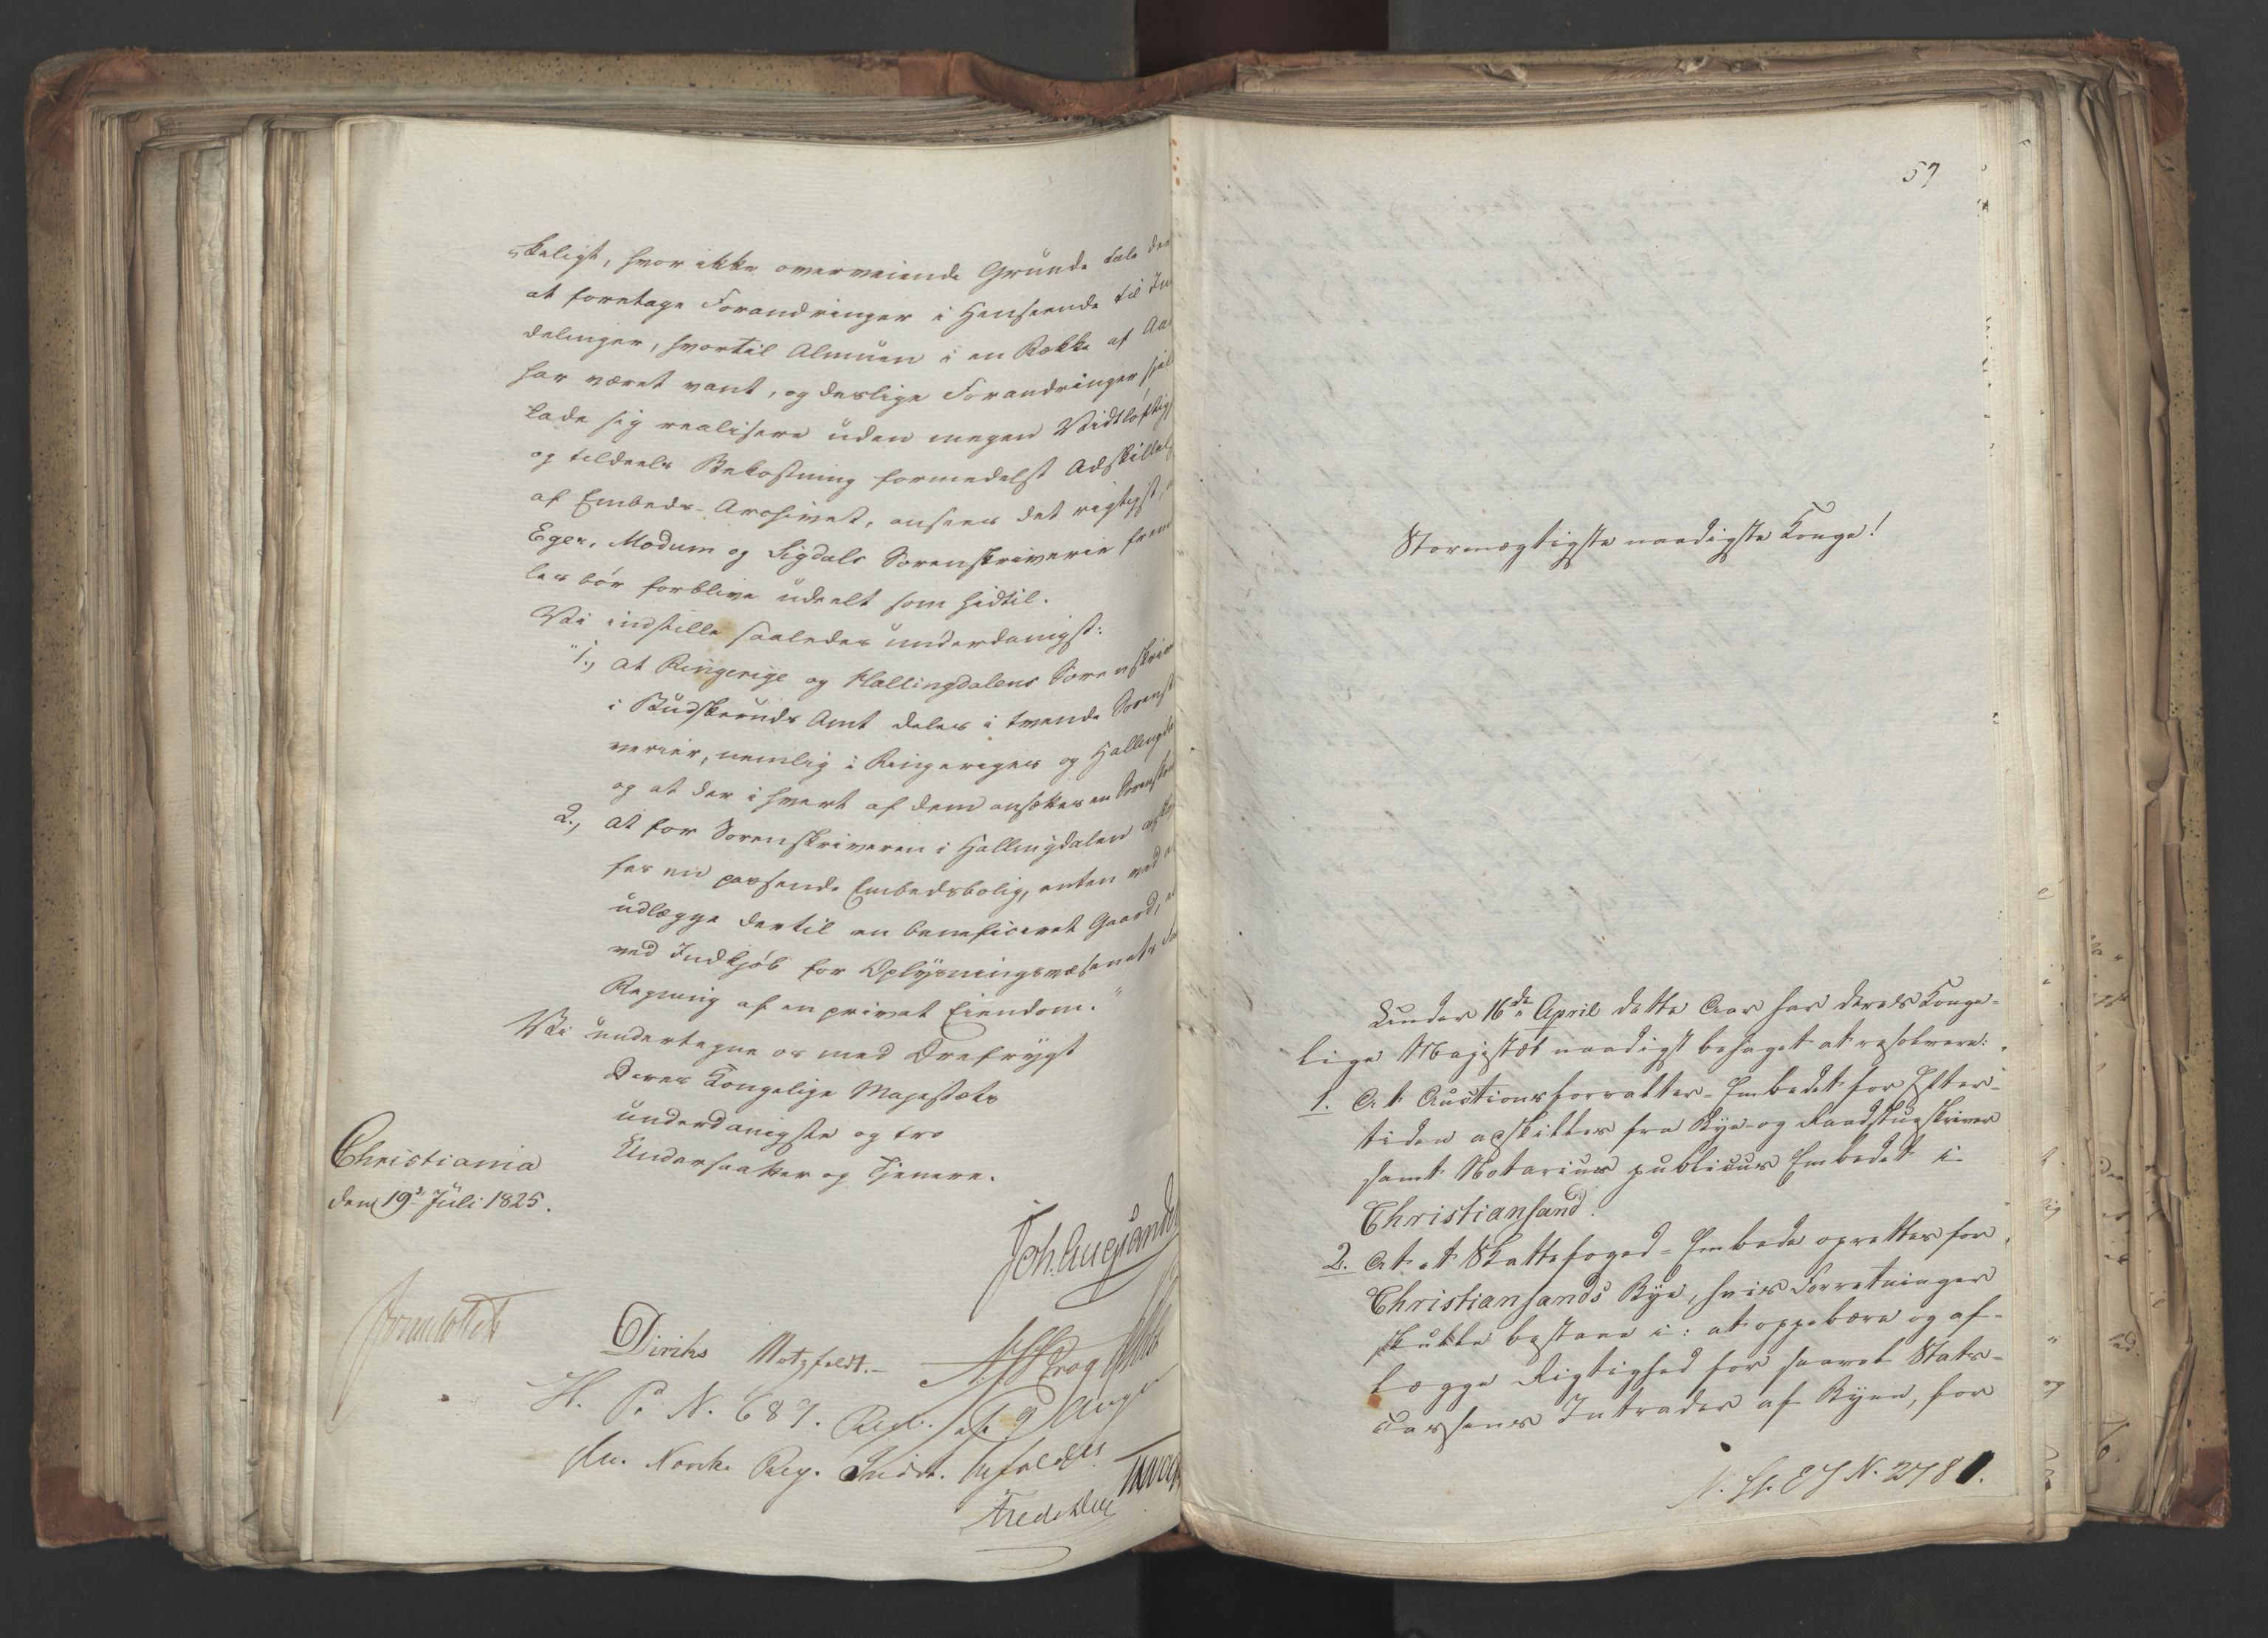 skeligt, hvor ikke overveiende Grunde tale der
at foretage Forandringer i Henseende til In
delinger, hvortil Almuen i en Række af Aa
har været vant, og deslige Forandringer sjel
lade sig realisere uden megen Vidtløftig
og tildeels Bekostning formedelst Adskillel
af Embeds-Archivet, ansees det rigtigst,
Eger, Modum og Sigdals Sorenskriverie frem
les bør forblive udeelt som hidtil.
Vi indstille saaledes underdanigst:
"1., at Ringerige og Hallingdalens Sorenskriv
i Budskeruds Amt deles i tvende Sorensk
verier, nemlig i Ringeriges og Hallingda
og at der i hvert af dem ansættes en Sorenskri
2., at for Sorenskriveren i Hallingdalen
fes en passende Embedsbolig, enten ved
udlægge dertil en beneficeret Gaard,
ved Indkjøb for Oplysningsvæsenets
Regning af en privat Eiendom."
Vi undertegne os med Ærefrygt
Deres Kongelige Majestæts
underdanigste og tro
Undersaatter og Tjenere.
Christiania
den 19de Juli 1825.
Joh. Aug. Sande
Diriks Motzfeldt.
Krog
H. P. N. 687.
Norske Reg. Indst.
Fred. Due
57
Stormægtigste naadigste Konge!
Under 16de April dette Aar har Deres Konge-
lige Majestæt naadigst behaget at resolvere:
1. At Auctionsforvalter-Embedet for Efter-
tiden adskilles fra Bye- og Raadstueskriver
samt Notarius publicus Embedet i
Christiansand.
2. At et Skattefoged-Embede oprettes for
Christiansands Bye, hvis Forretninger
skulle bestaae i: at oppebære og af-
lægge Rigtighed for saavel Stats-
cassens Intrader af Byen, for
N. 2781.